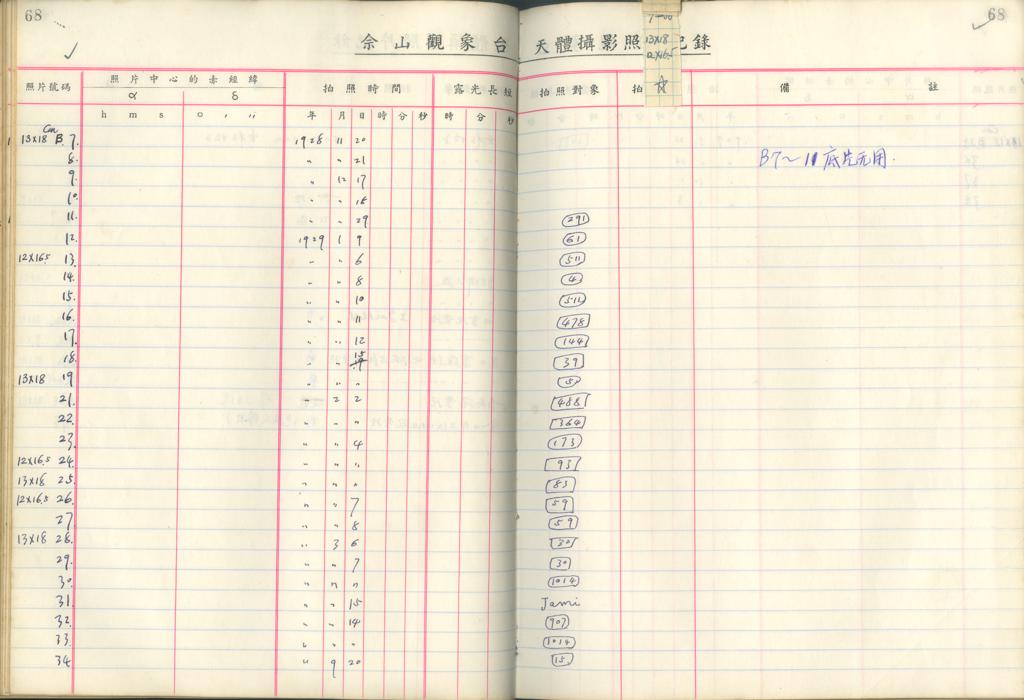 68
68
佘山觀象台 天體攝影照 記錄
7-00
13×18
12×16.5
照片號碼 照片中心的赤經緯 拍照時間 露光長短 拍照對象 拍 備 註
α δ
h m s ° ′ ″ 年 月 日 時 分 秒 時 分 秒
cm
13×18 B 7. 1928 11 20
8. " " 21 B7~11底片无用.
9. " 12 17
10. " " 18
11. " " 29 291
12. 1929 1 9 61
12×16.5 13. " " 6 511
14. " " 8 4
15. " " 10 512
16. " " 11 478
17. " " 12 144
18. " " 15 39
13×18 19 " " " 5
21. " 2 2 488
22. " " " 364
23. " " 4 173
12×16.5 24. " " " 93
13×18 25. " " " 83
12×16.5 26. " " 7 59
27. " " 8 59
13×18 28. " 3 6 30
29. " " 7 30
30. " " " 1014
31. " " 15 Jami
32. " " 14 707
33. " " " 1014
34. " 9 20 15.